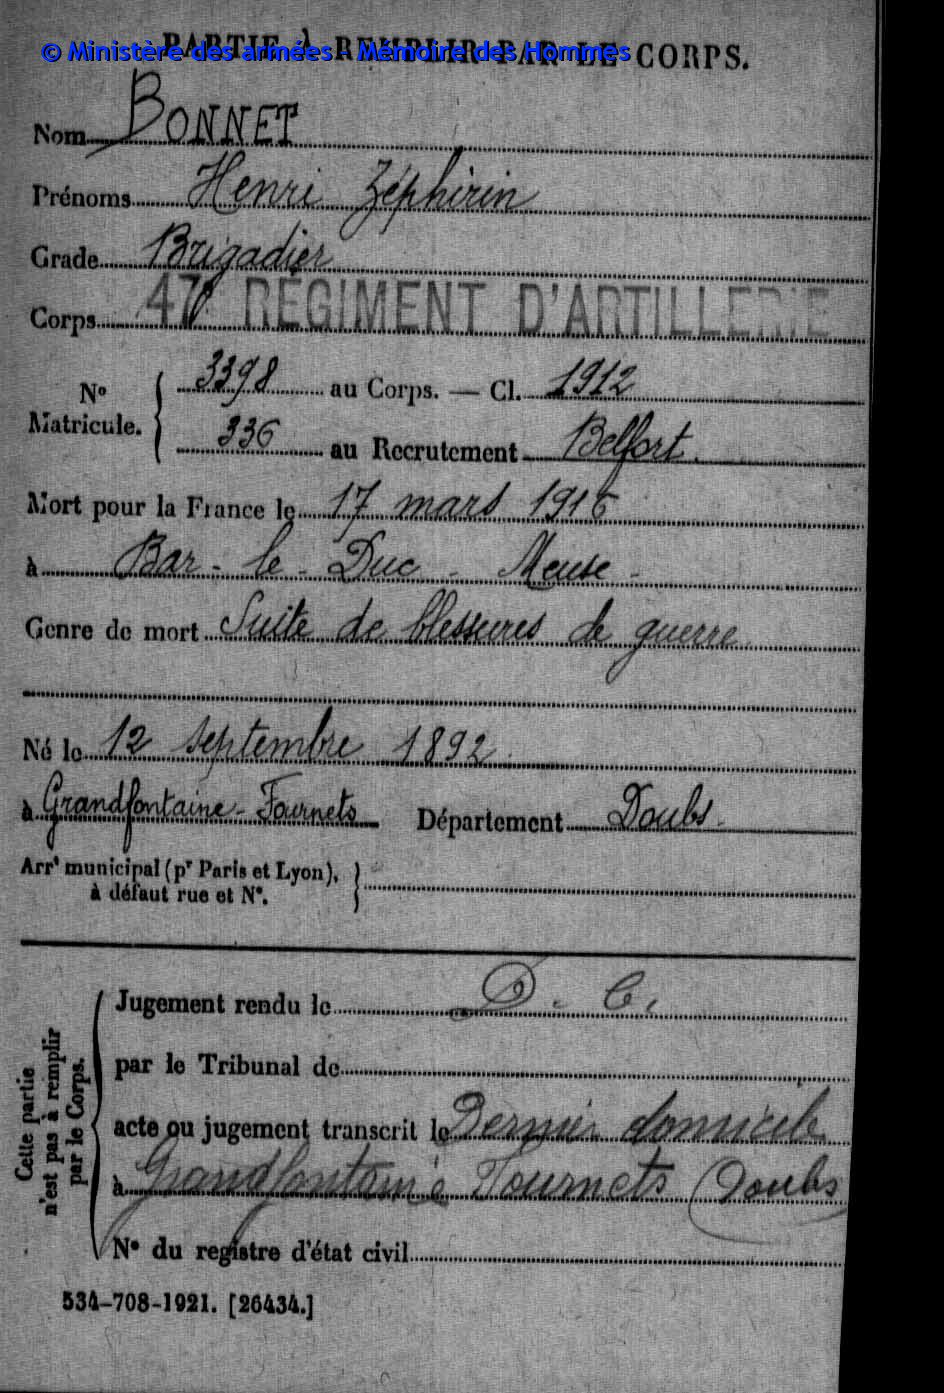 PARTIE À REMPLIR PAR LE CORPS.
© Ministère des armées - Mémoire des Hommes
Nom BONNET
Prénoms Henri Zéphirin
Grade Brigadier
Corps 47e RÉGIMENT D'ARTILLERIE
No Matricule. { 3398 au Corps. — Cl. 1912
336 au Recrutement Belfort.
Mort pour la France le 17 mars 1916
à Bar - le - Duc - Meuse -
Genre de mort Suite de blessures de guerre
Né le 12 septembre 1892.
à Grandfontaine - Fournets Département Doubs.
Arrt municipal (pr Paris et Lyon),
à défaut rue et No.
Cette partie
n'est pas à remplir
par le Corps.
Jugement rendu le D. C.
par le Tribunal de
acte ou jugement transcrit le Dernier domicile
à Grandfontaine Fournets (Doubs
No du registre d'état civil
534-708-1921. [26434.]